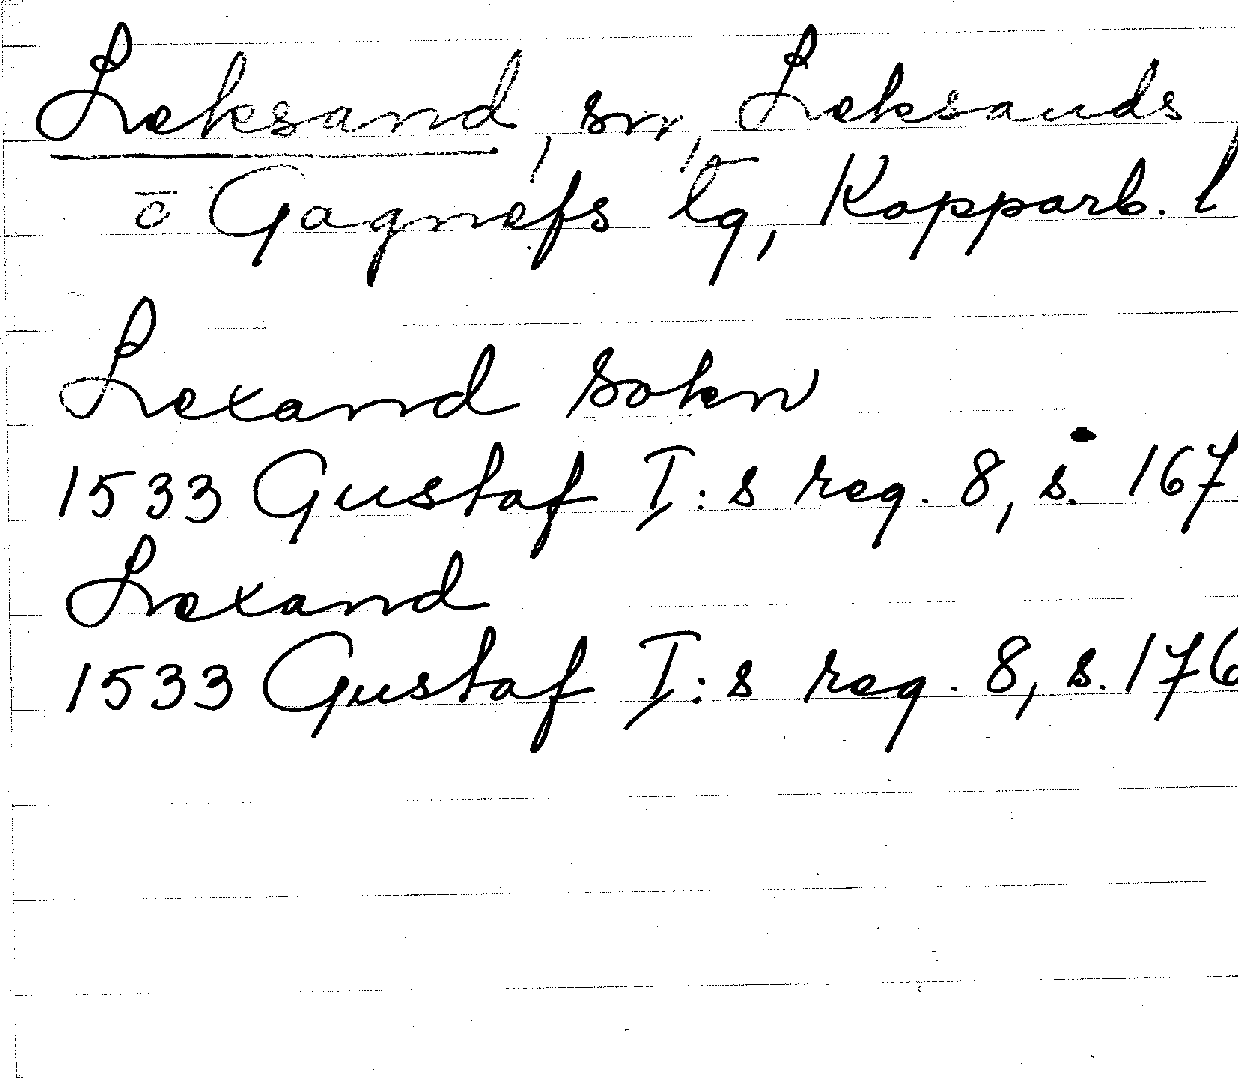 Leksand, sn, Leksands
o Gagnefs tg, Kopparb. l
Lexand Sokn
1533 Gustaf I:s reg. 8, s. 167
Lexand
1533 Gustaf I:s reg. 8, s. 176